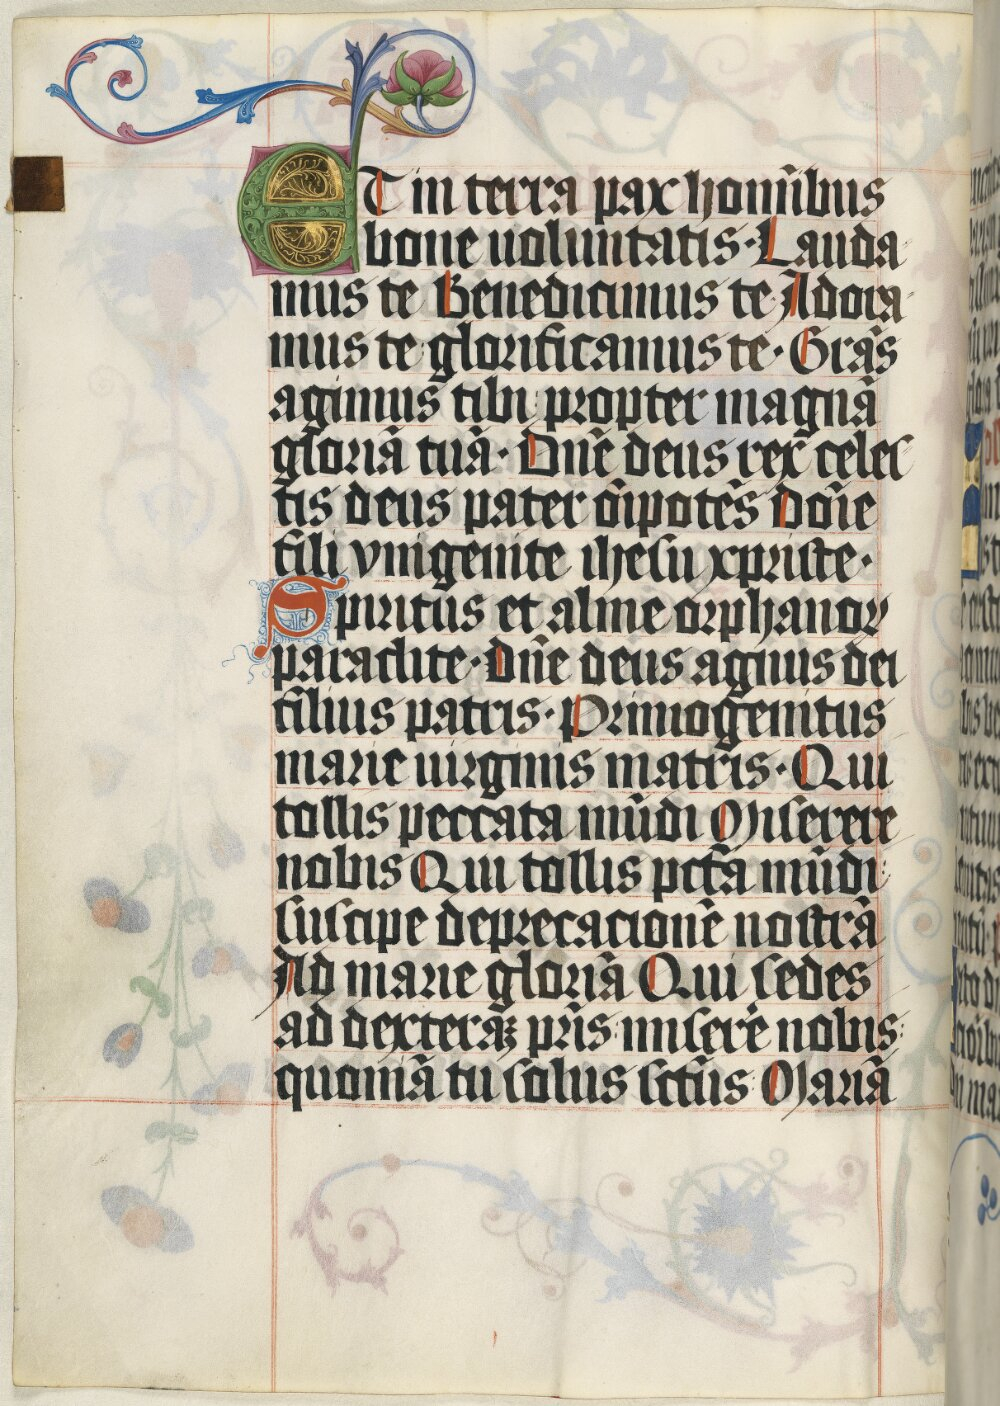 ET in terra pax homı̄bus
bone uoluntatis· Lauda-
mus te Benedicimus te Adora-
mus te glorificamus te· Grās
agimus tibi propter magnā
gloriā tuā· Dn̄e deus rex celes
tis deus pater om̄ipotēs Dom̄e
fili vnigenite ihesu xpriste·
Spiritus et alme orphanoꝝ
paraclite· Dn̄e deus agnus dei
filius patris· Primogenitus
marie uirginis matris· Qui
tollis peccata mūdi Miserere
nobis Qui tollis pctā mūdi·
suscipe deprecacionē nostrā
Ad marie gloriā Qui sedes
ad dexterāꝫ pr̄is miserē nobis·
quoniā tu solus sctūs Mariā